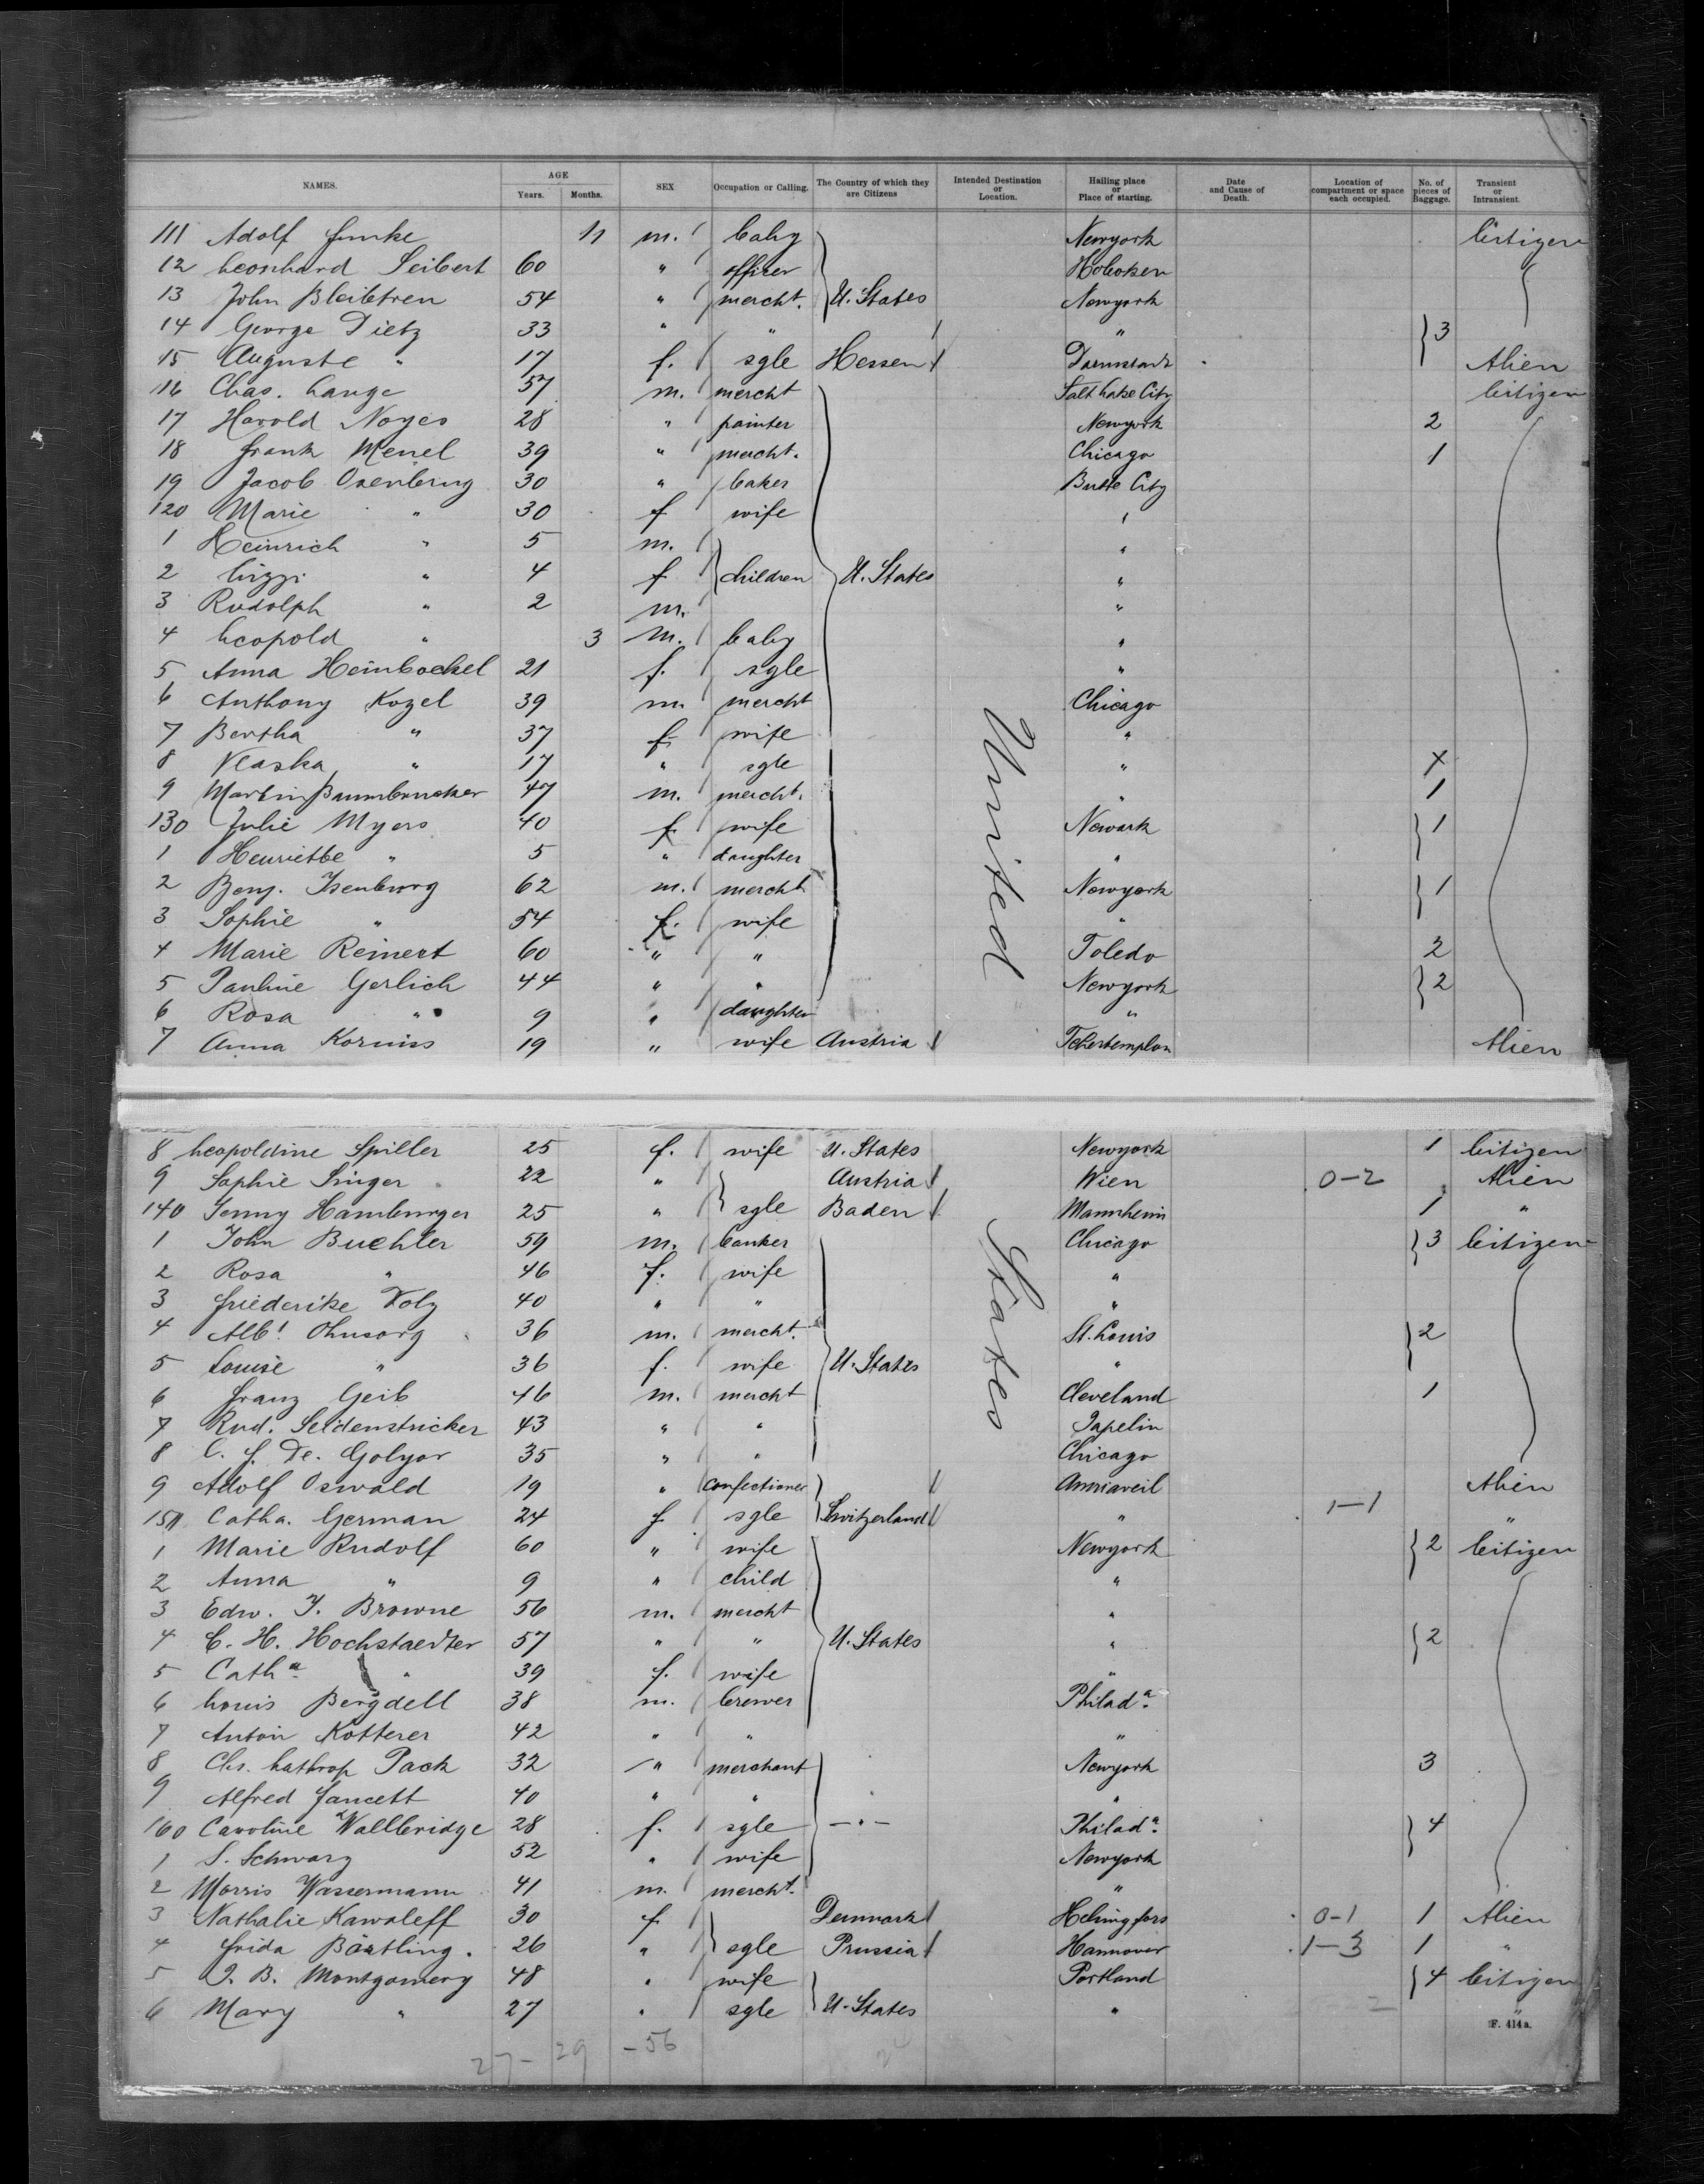 NAMES. AGE Years. Months. SEX Occupation or Calling. The Country of which they are Citizens Intended Destination or Location. Hailing place or Place of starting. Date and Cause of Death. Location of compartment or space each occupied. No. of pieces of Baggage. Transient or Intransient.
111 Adolf Funke 11 m. baby Newyork Citizen
12 Leonhard Seibert 60 " officer Hoboken
13 John Bleibtren 54 " mercht. U. States Newyork
14 George Dietz 33 " " " 3
15 Auguste " 17 f. sgle Hessen Darmstadt Alien
116 Chas. Lange 57 m. mercht Salt Lake City Citizen
17 Harold Noyes 28 " painter Newyork 2
18 Frank Menel 39 " mercht. Chicago 1
19 Jacob Osenbrug 30 " baker Butte City
120 Marie " 30 f wife "
1 Heinrich " 5 m. "
2 Lizzi " 4 f children U. States "
3 Rudolph " 2 m. "
4 Leopold " 3 m. baby "
5 Anna Heinbockel 21 f. sgle "
6 Anthony Kozel 39 m. mercht Chicago
7 Bertha " 37 f. wife "
8 Vlaska " 17 " sgle " X
9 Martin Baumbrucker 47 m. mercht. " 1
130 Julie Myers 40 f. wife Newark 1
1 Henriette " 5 " daughter "
2 Benj. Isenburg 62 m. mercht Newyork 1
3 Sophie " 54 f. wife "
4 Marie Reinert 60 " " Toledo 2
5 Pauline Gerlich 44 " " Newyork 2
6 Rosa " 9 " daughter "
7 Anna Korniss 19 " wife Austria Alien
United
8 Leopoldine Spiller 25 f. wife U. States Newyork 1 Citizen
9 Sophie Singer 22 " Austria Wien 0-2 Alien
140 Jenny Hamburger 25 " sgle Baden Mannheim 1 "
1 John Buehler 59 m. banker Chicago 3 Citizen
2 Rosa " 46 f. wife "
3 Friederike Volz 40 " " "
4 Albt. Ohnsorg 36 m. mercht. St. Louis 2
5 Louise " 36 f. wife U. States "
6 Franz Geib 46 m. mercht Cleveland 1
7 Rud. Seidenstricker 43 " " Japelin
8 C. F. De. Golyor 35 " " Chicago
States
9 Adolf Oswald 19 " confectioner Amriaveil Alien
150 Catha. German 24 f sgle Switzerland " 1-1 "
1 Marie Rudolf 60 " wife Newyork 2 Citizen
2 Anna " 9 " child "
3 Edw. T. Browne 56 m. mercht "
4 C. H. Hochstaedter 57 " " U. States " 2
5 Catha. " 39 f. wife "
6 Louis Bergdell 38 m. brewer Philada.
7 Anton Kotterer 42 " " "
8 Chs. Lathrop Pack 32 " merchant Newyork 3
9 Alfred Fancett 40 " " "
160 Caroline Wallbridge 28 f. sgle -"- Philada. 4
1 S. Schwarz 52 " wife Newyork
2 Morris Wassermann 41 m. mercht. "
3 Nathalie Kawaleff 30 f Denmark Helsingfors 0-1 1 Alien
4 Frida Bärtling. 26 " sgle Prussia Hannover 1-3 1 "
5 Q. B. Montgomery 48 " wife Portland 4 Citizen
6 Mary " 27 " sgle U. States " 2 "
F. 414a.
27-29-56